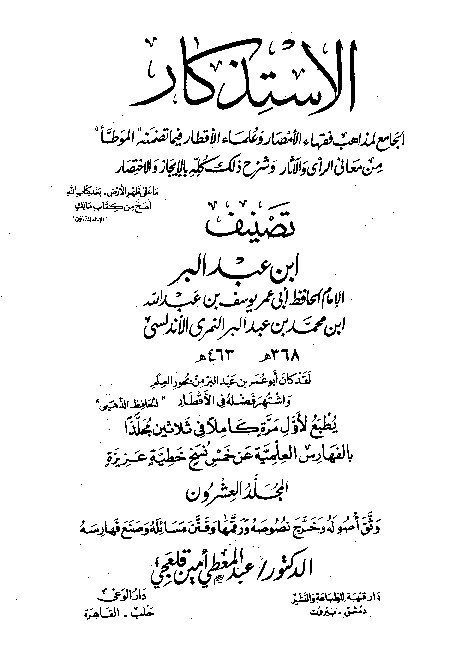 الاستذكار
الجامع لمذاهب فقهاء الأمصار وعلماء الأقطار فيما تضمنه "الموطأ"
من معاني الرأي والآثار وشرح ذلك كله بالإيجاز والاختصار
ما على ظهر الأرض - بعد كتاب الله
أصح من كتاب مالك
تصنيف
ابن عبد البر
الإمام الحافظ أبي عمر يوسف بن عبد الله
ابن محمد بن عبد البر النمري الأندلسي
٣٦٨هـ ٤٦٣هـ
لقد كان أبو عمر بن عبد البر من بحور العلم
واشتهر فضله في الأقطار "الحافظ الذهبي"
يطبع لأول مرة كاملا في ثلاثين مجلدا
بالفهارس العلمية عن خمس نسخ خطية عزيزة
المجلد العشرون
وثق أصوله وخرج نصوصه ورقمها وقنن مسائله وصنع فهارسه
الدكتور/ عبد المعطي أمين قلعجي
دار قتيبة للطباعة والنشر
دمشق - بيروت
دار الوعي
حلب - القاهرة